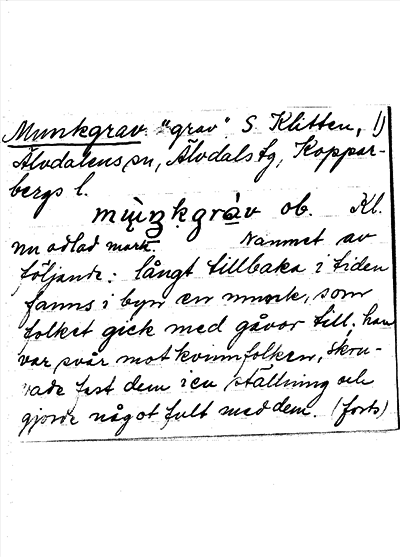 Munkgrav. "grav" S. Klitten, 1)
Älvdalens sn, Älvdals tg, Koppar-
bergs l.
mùŋkgràv ob. Kl.
nu odlad mark. Namnet av
följande: långt tillbaka i tiden
fanns i byn en munk, som
folket gick med gåvor till; han
var svår mot kvinnfolken, skru-
vade fast dem i en ställning och
gjorde något fult med dem. (forts)